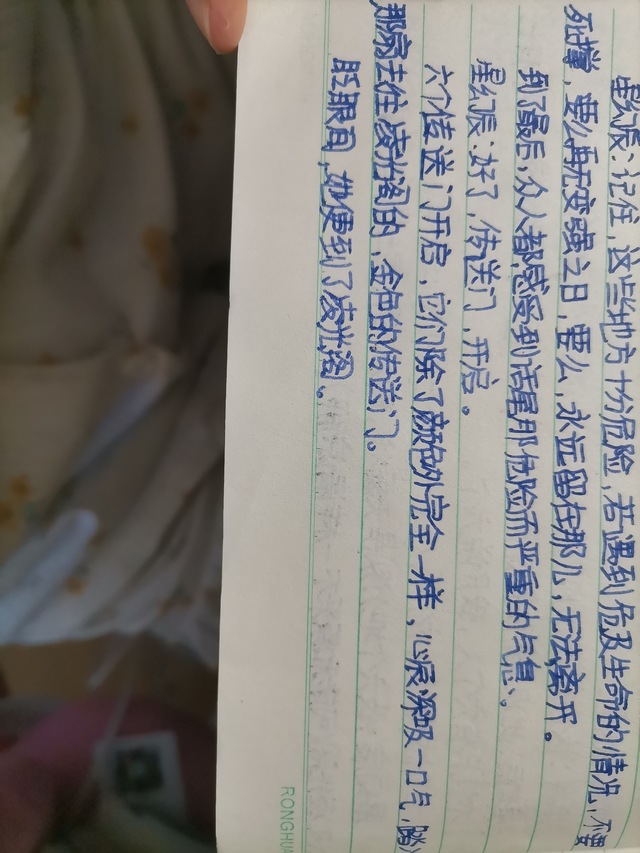 星幻辰:记住,这些地方十分危险,若遇到危及生命的情况,不要
死撑,要么再无变强之日,要么,永远留在那儿,无法离开。
到了最后,众人都感受到话尾那危险而严重的气息。
星幻辰:好了,传送门,开启。
六个传送门开启,它们除了颜色外完全一样,心辰深吸一口气,踏入
那扇去往凌光阁的,金色的传送门。
眨眼间,她便到了凌光阁。
RONGHUA